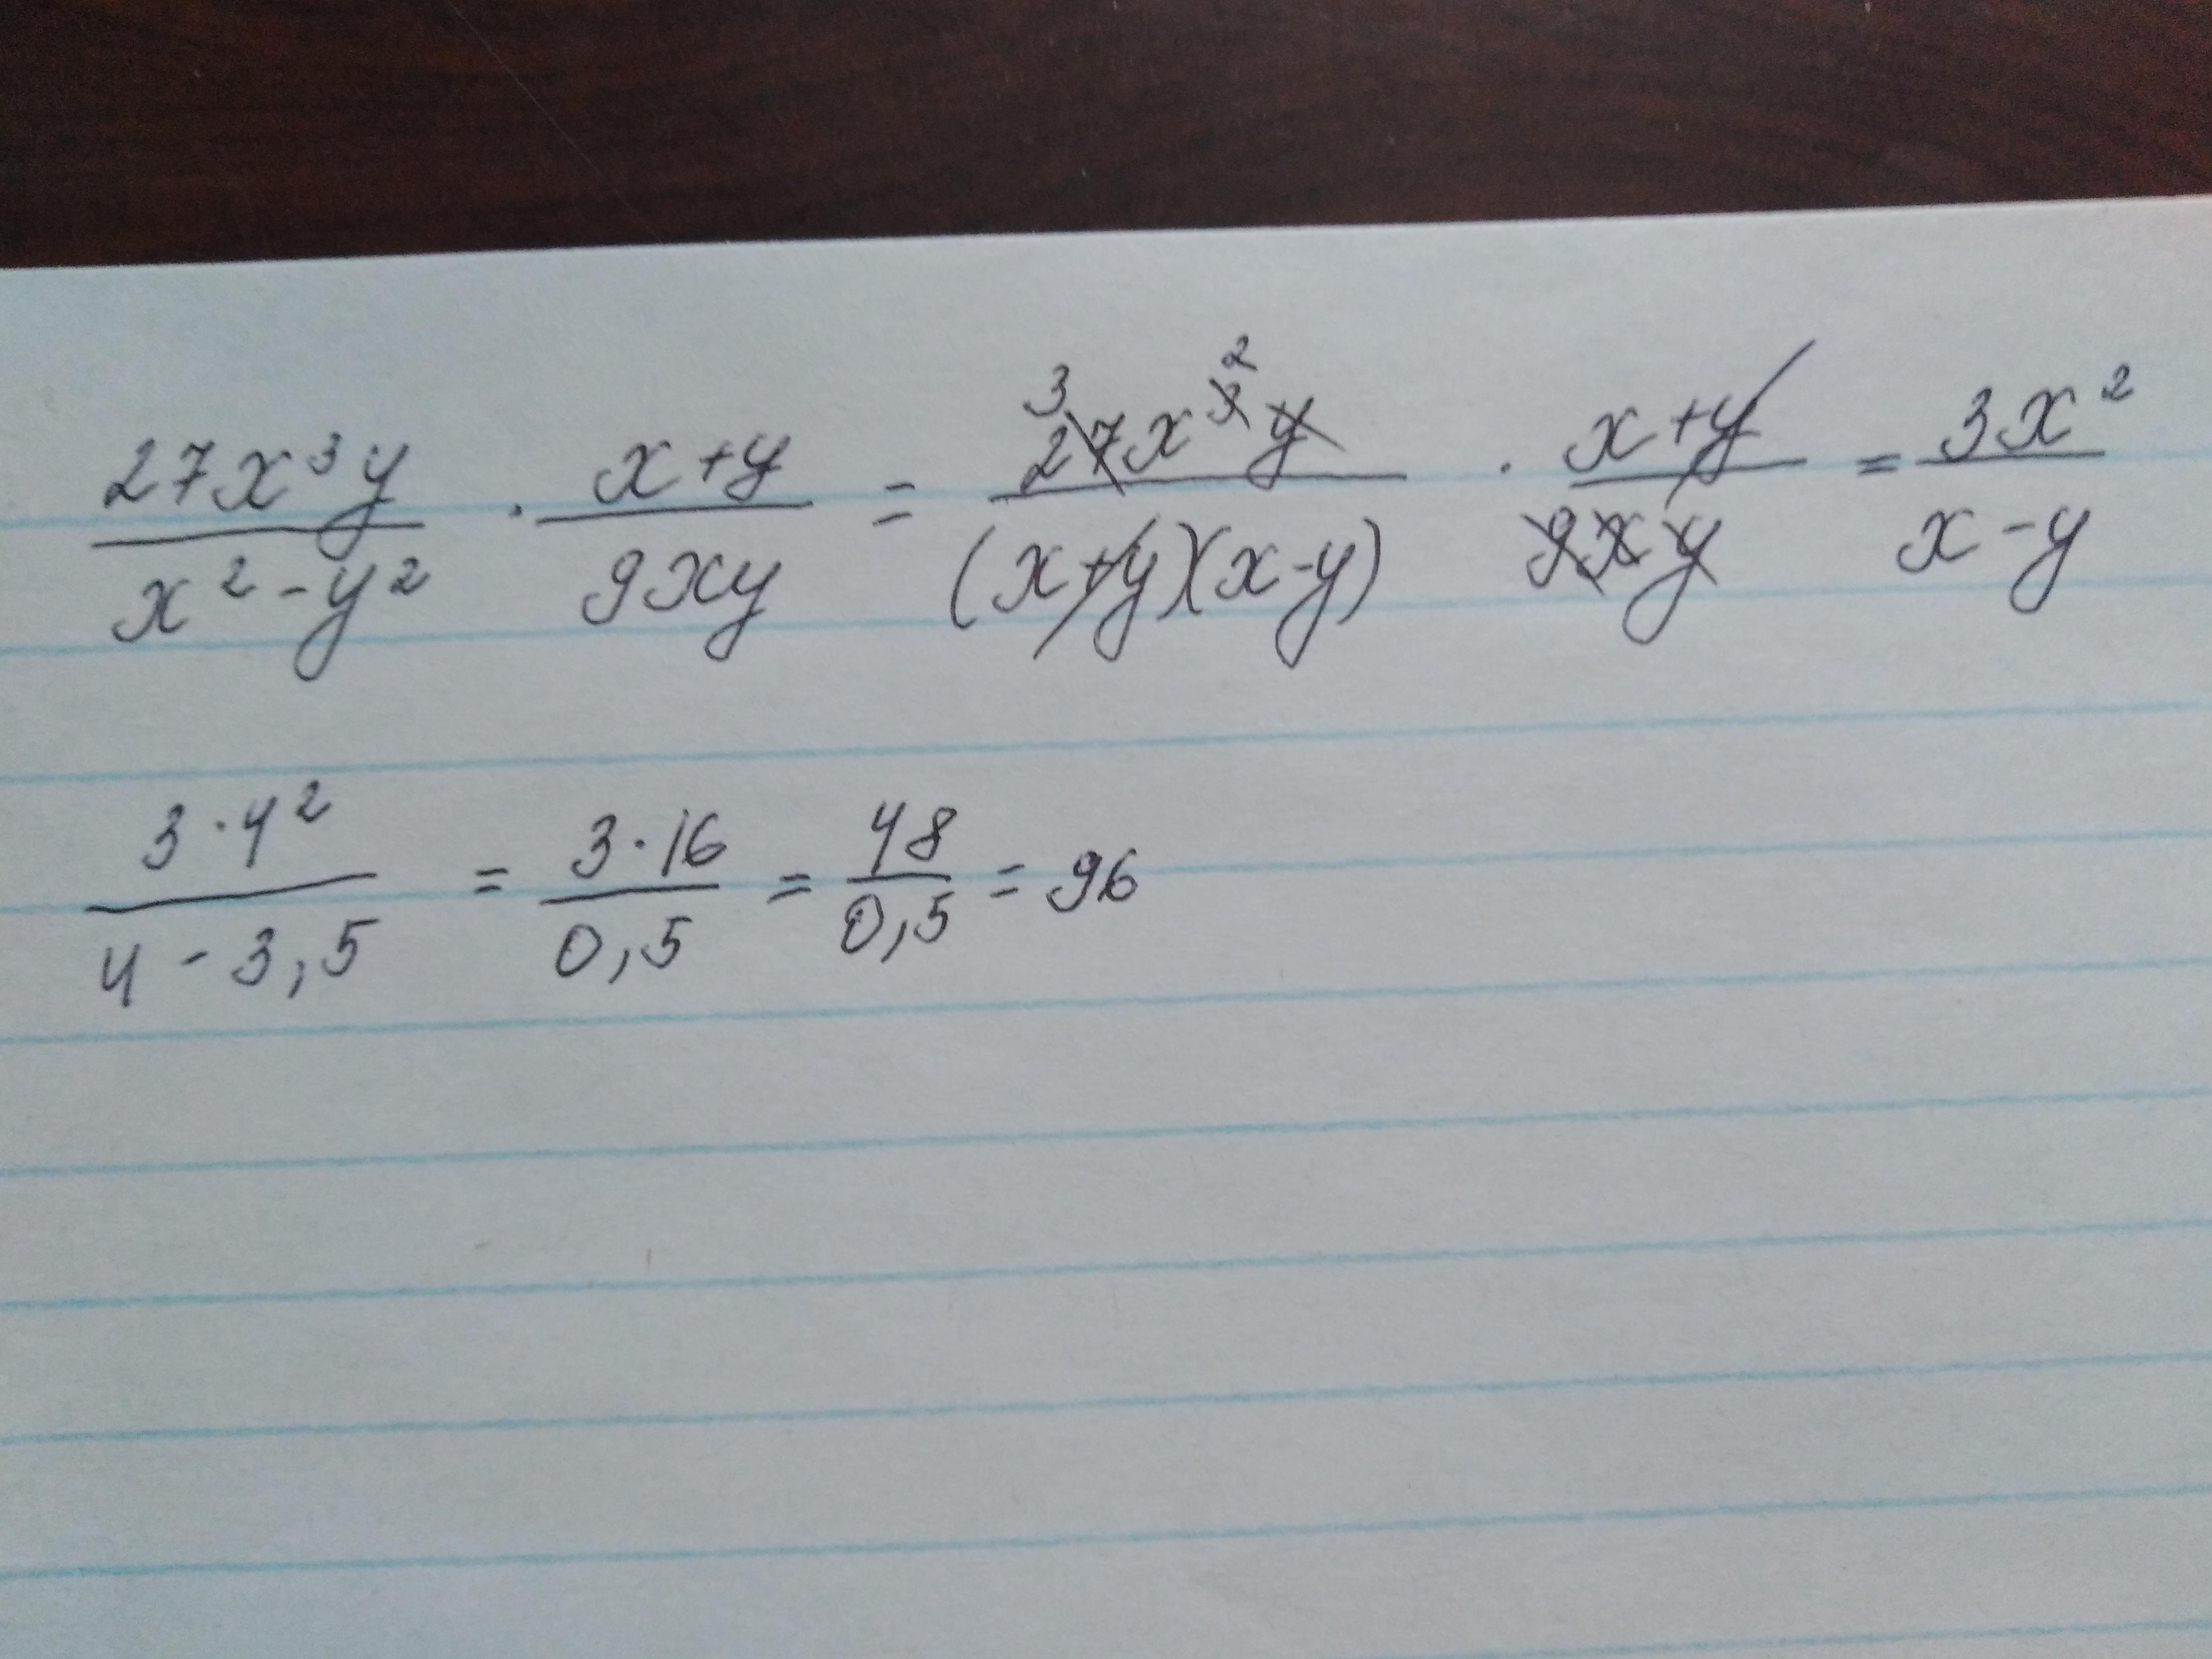 27x³y/x²-y² · x+y/9xy = ³27x³²y/(x+y)(x-y) · x+y/9xy = 3x²/x-y
3·4²/4-3,5 = 3·16/0,5 = 48/0,5 = 96